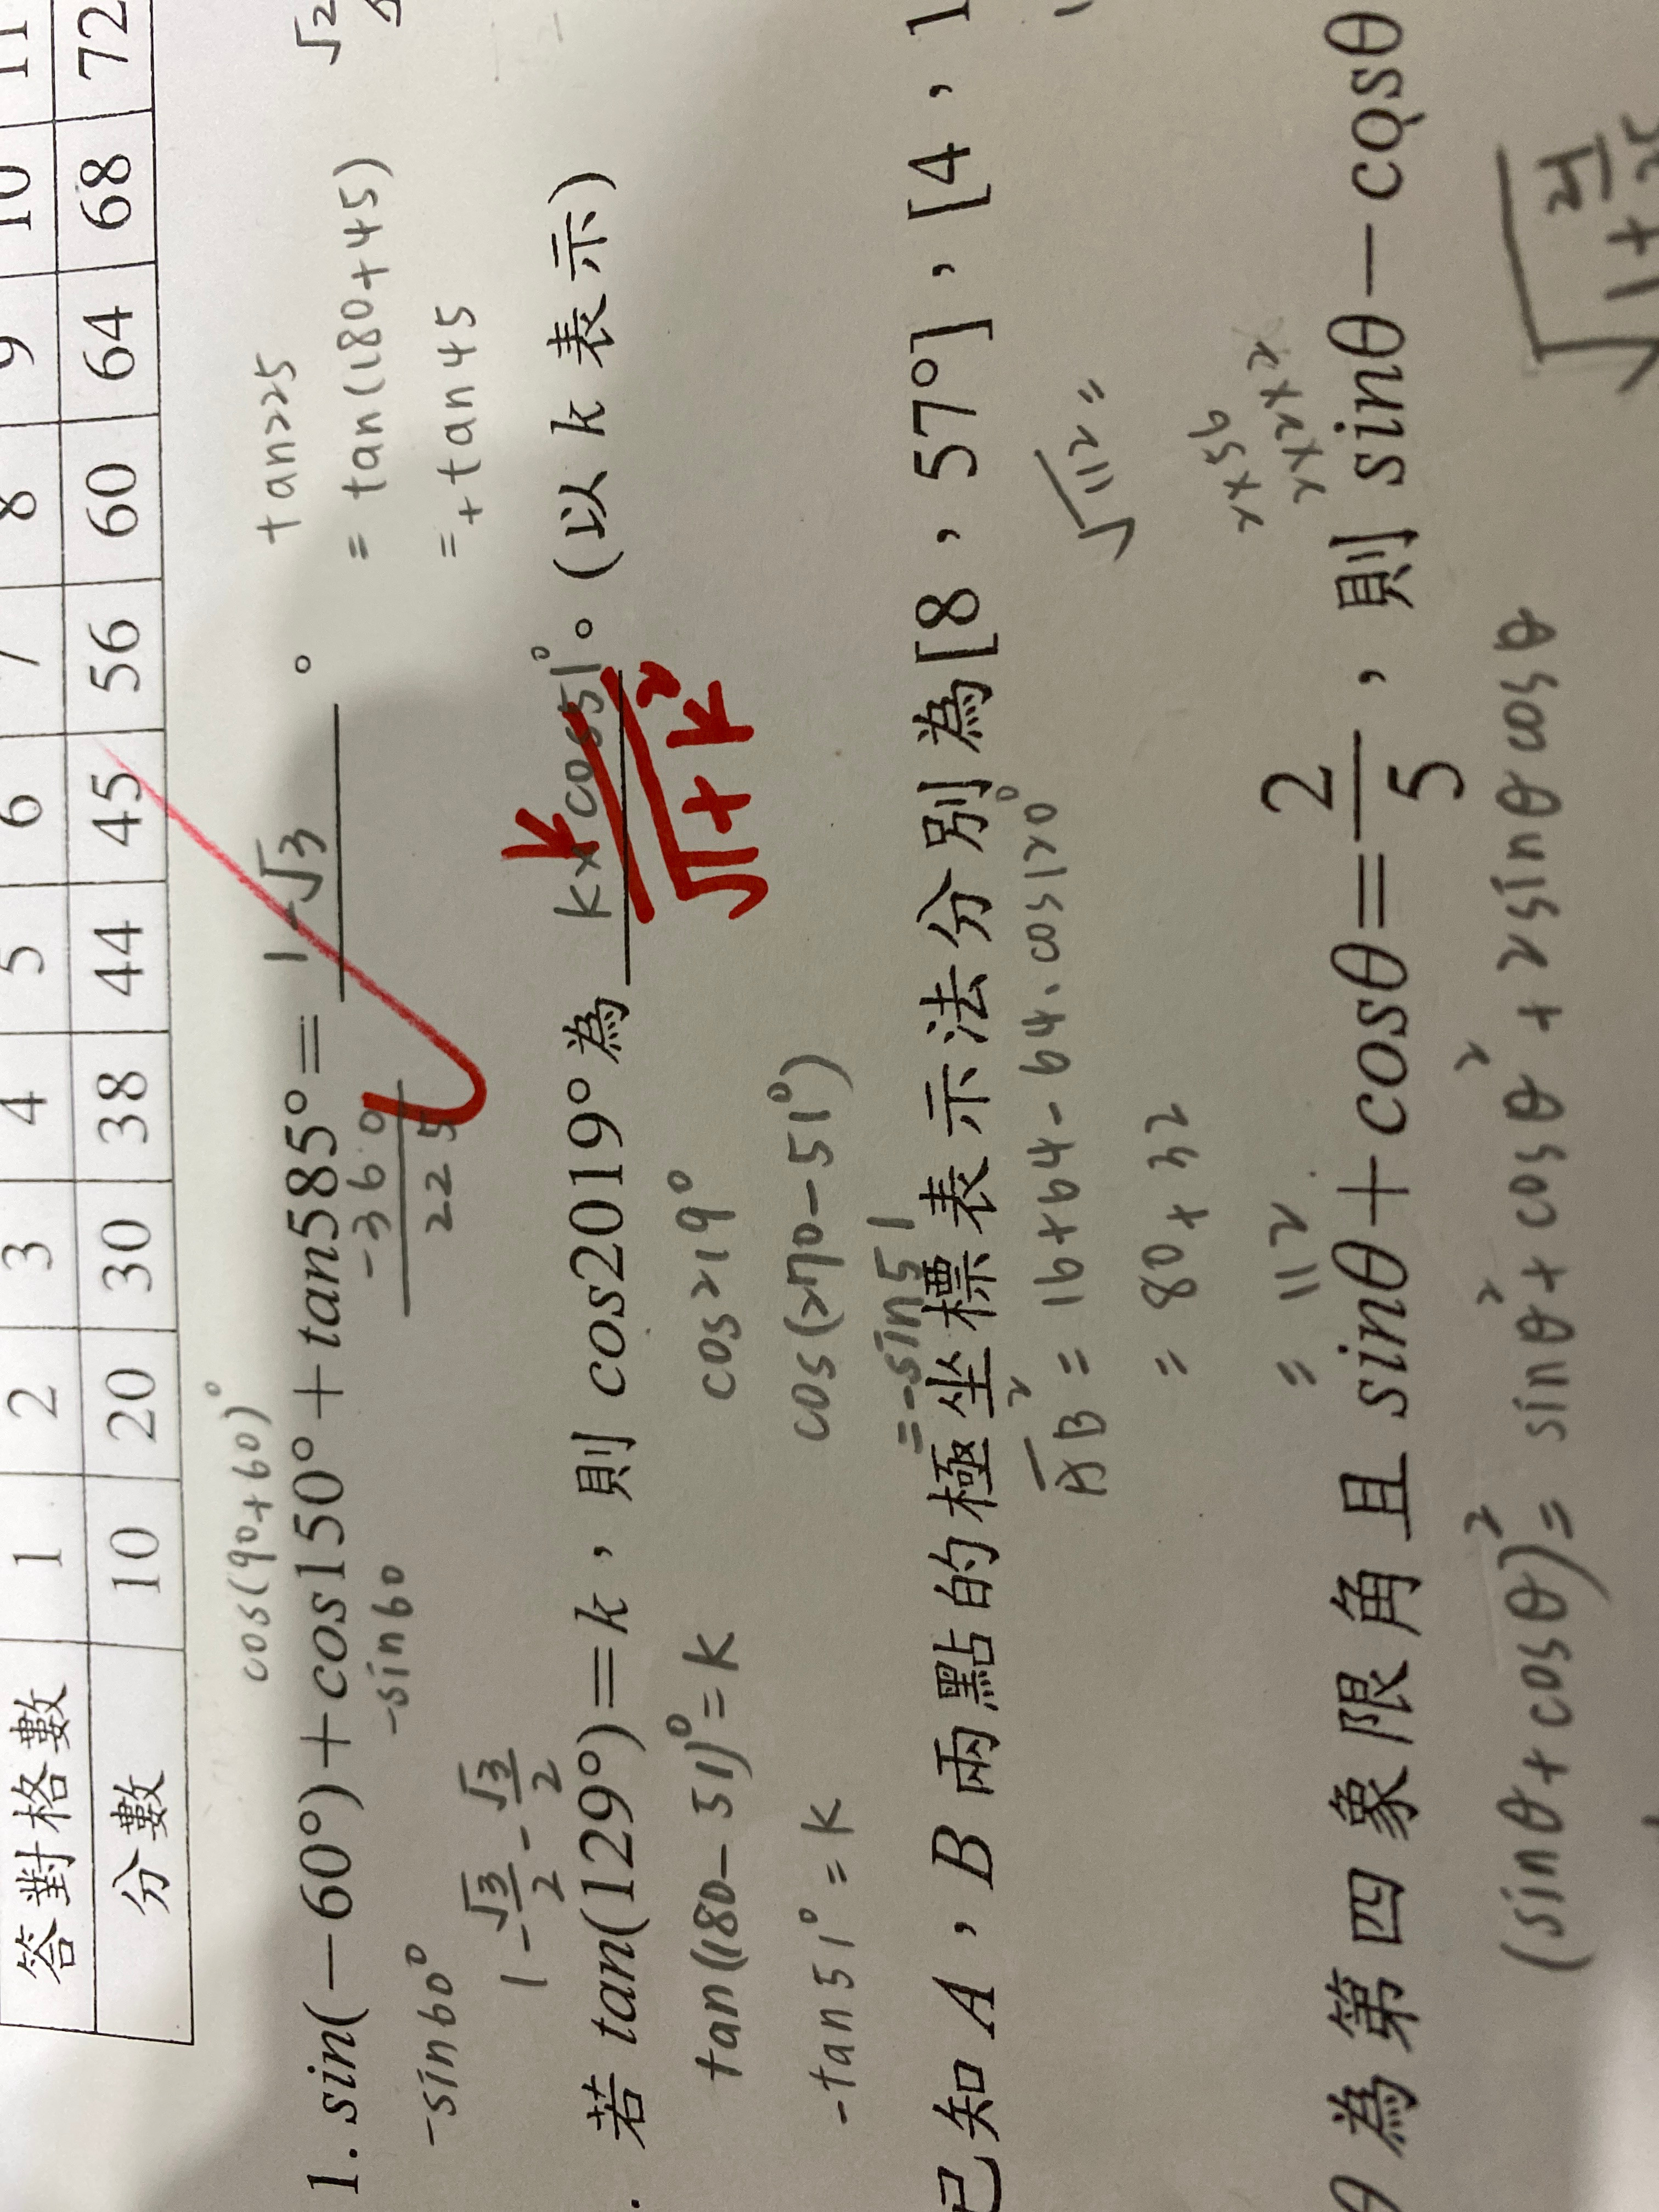 答對格數 1 2 3 4 5 6 7 8 9 10 11
分數 10 20 30 38 44 45 56 60 64 68 72
cos(90+60)°
1. sin(−60°)+cos150°+tan585°= 1-√3 。
-sin60° -sin60
-360
225
1-√3/2-√3/2
tan225
=tan(180+45)
=+tan45
√2
. 若 tan(129°)=k,則 cos2019° 為 k×cos51° 。(以 k 表示)
k/√1+k²
tan(180-51)°=k
-tan51°=k
cos219°
cos(270-51°)
=-sin51
已知 A,B 兩點的極坐標表示法分別為[8,57°]、[4,1
AB²=16+64-64.cos120°
=80+32
=112
√112=
2×56
2×2×2
θ 為第四象限角且 sinθ+cosθ=2/5,則 sinθ−cosθ
(sinθ+cosθ)²=sinθ²+cosθ²+2sinθcosθ